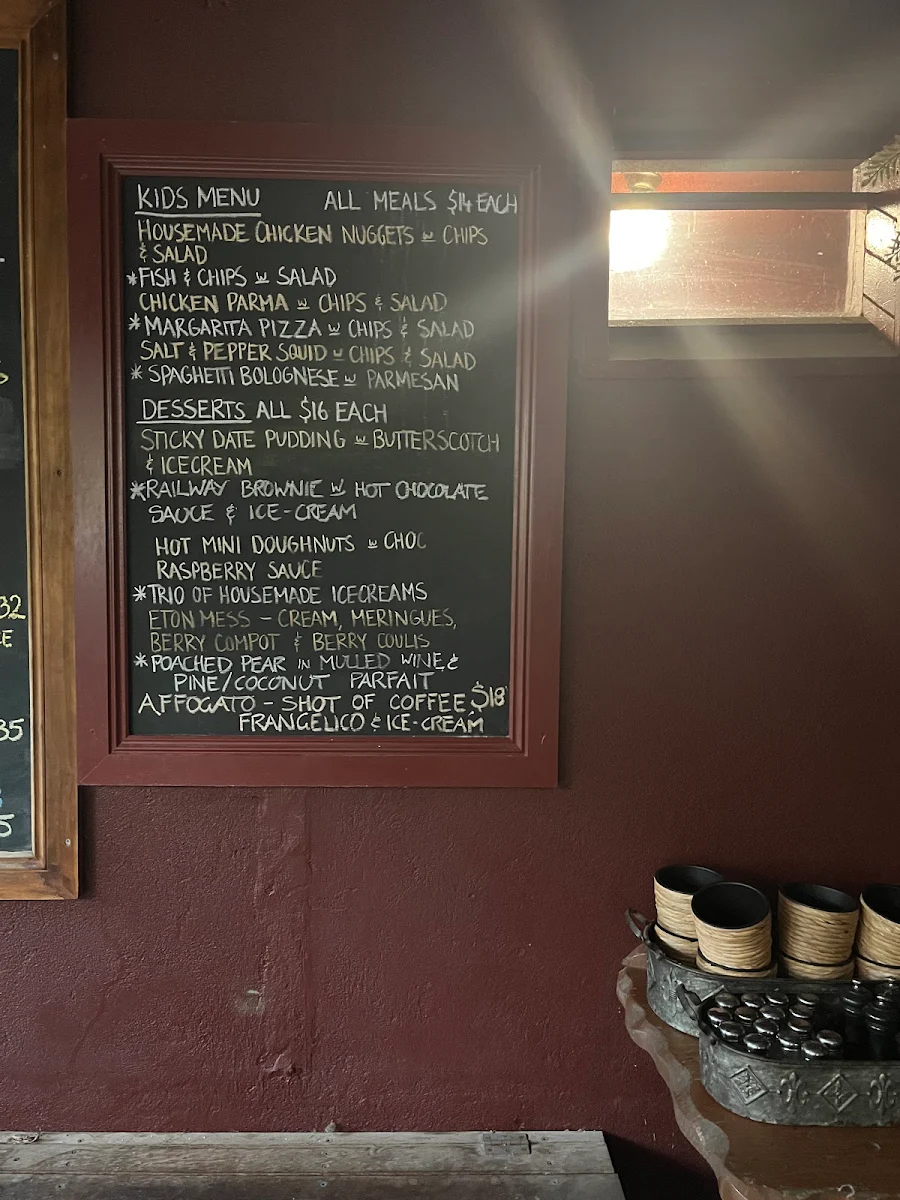 KIDS MENU ALL MEALS $14 EACH
HOUSEMADE CHICKEN NUGGETS w CHIPS
& SALAD
*FISH & CHIPS w SALAD
CHICKEN PARMA w CHIPS & SALAD
*MARGARITA PIZZA w CHIPS & SALAD
SALT & PEPPER SQUID w CHIPS & SALAD
*SPAGHETTI BOLOGNESE w PARMESAN
DESSERTS ALL $16 EACH
STICKY DATE PUDDING w BUTTERSCOTCH
& ICECREAM
*RAILWAY BROWNIE w HOT CHOCOLATE
SAUCE & ICE-CREAM
HOT MINI DOUGHNUTS w CHOC
RASPBERRY SAUCE
*TRIO OF HOUSEMADE ICECREAMS
ETON MESS - CREAM, MERINGUES,
BERRY COMPOT & BERRY COULIS
*POACHED PEAR IN MULLED WINE &
PINE/COCONUT PARFAIT
AFFOGATO - SHOT OF COFFEE $18
FRANGELICO & ICE-CREAM
32
35